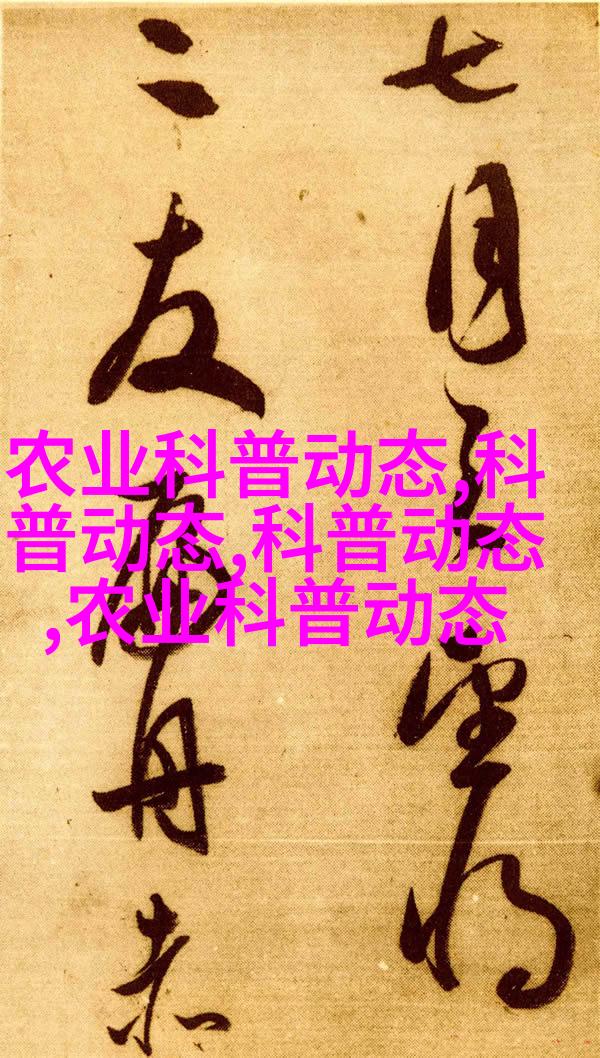 七月望将
二友舟赤
农业科普动态,科
普动态,科普动态
,农业科普动态